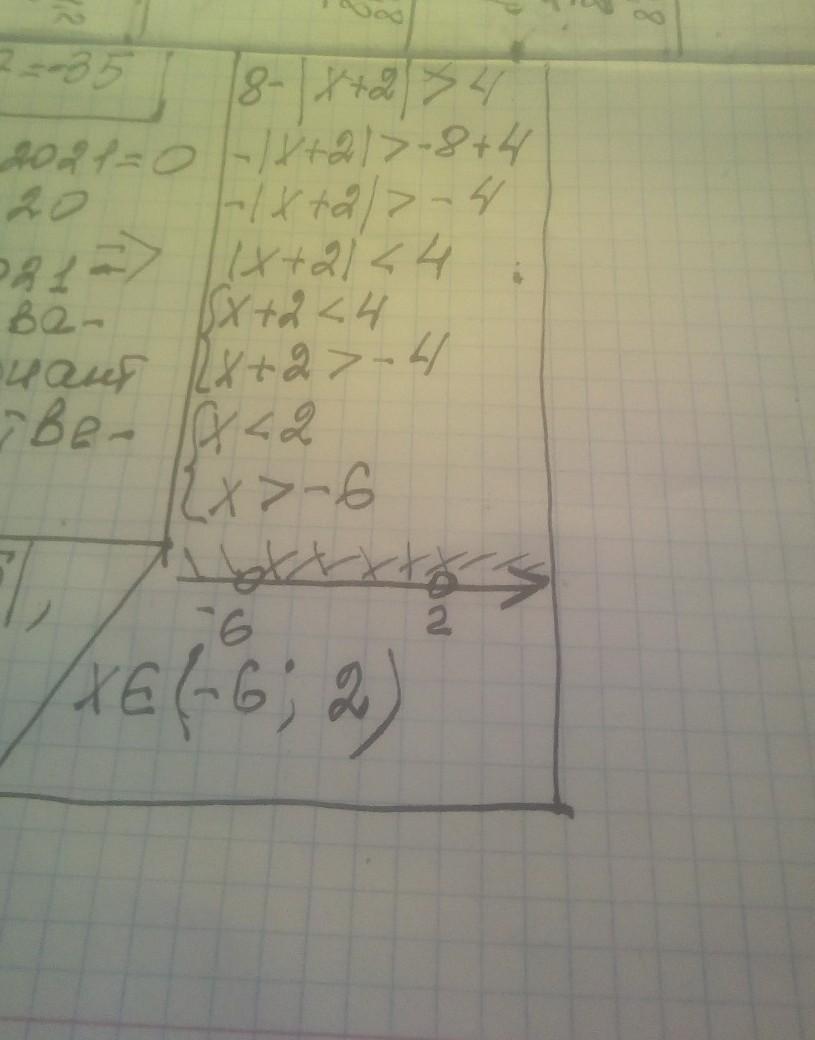 2=-35
2021=0
20
021=>
ва-
иант
тве-
8-|x+2|>4
-|x+2|>-8+4
-|x+2|>-4
|x+2|<4
{x+2<4
{x+2>-4
{x<2
{x>-6
-6 2
x∈(-6; 2)